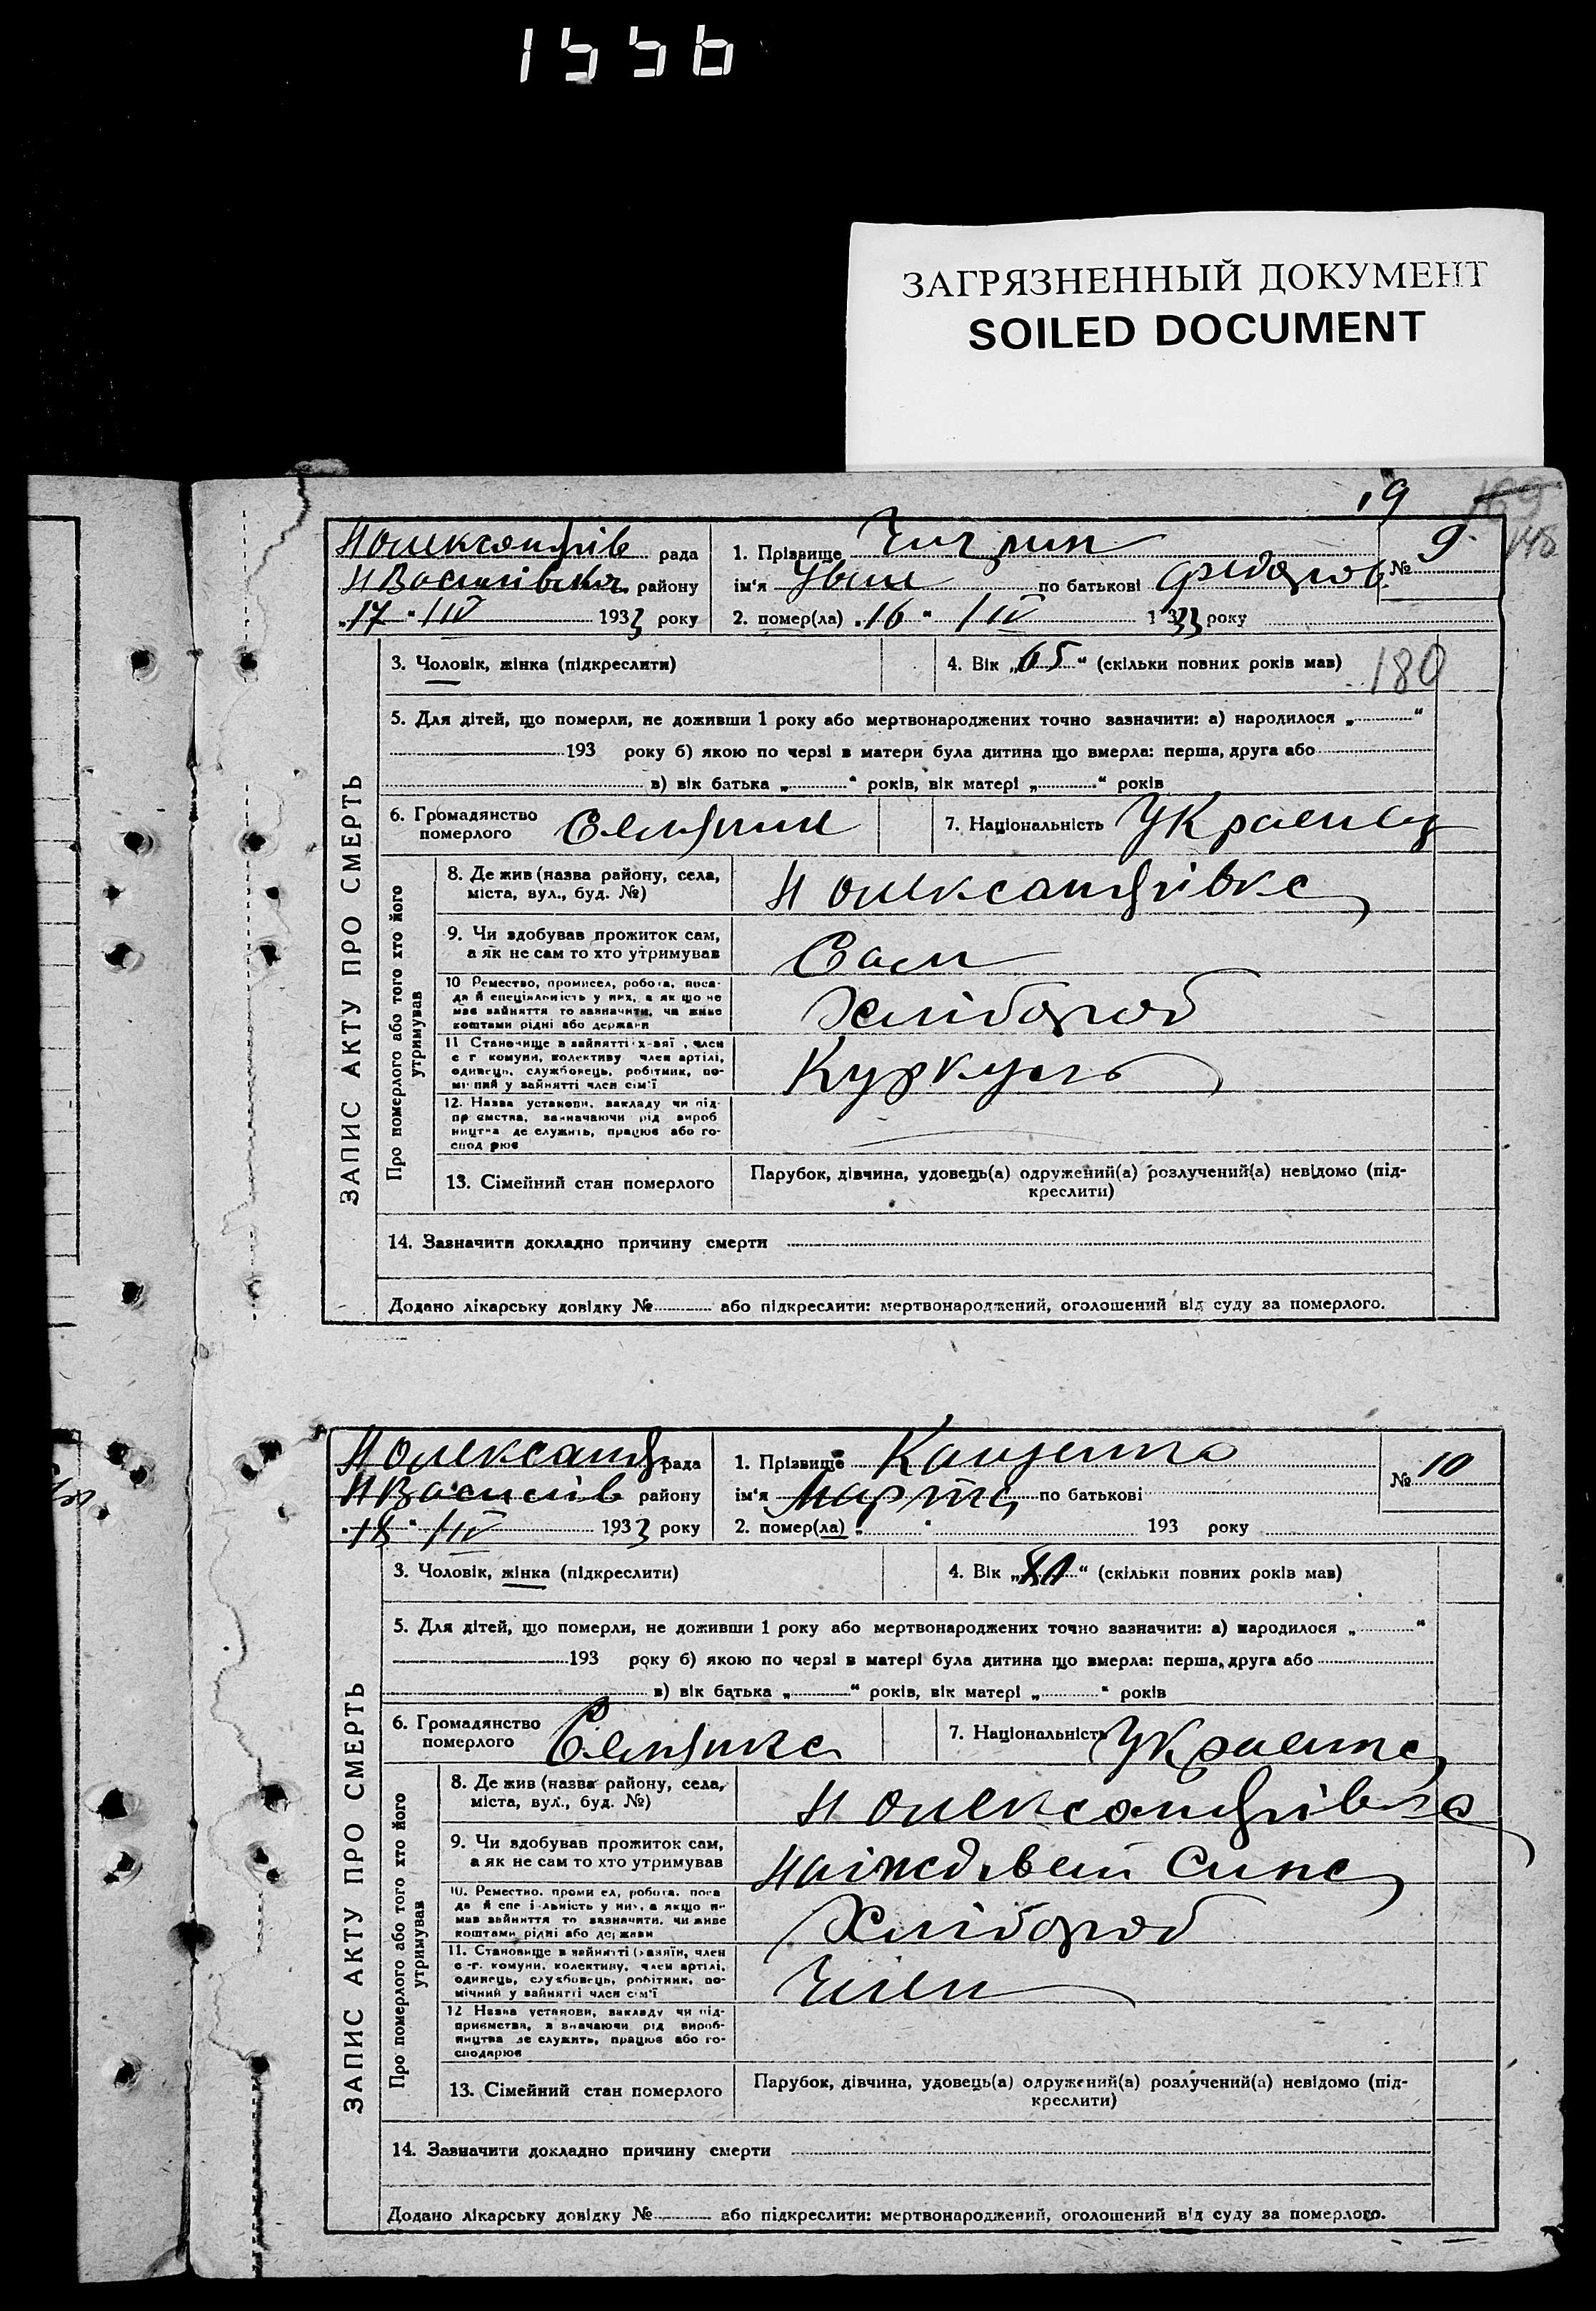 1556
ЗАГРЯЗНЕННЫЙ ДОКУМЕНТ
SOILED DOCUMENT
19
169
148
Нолександрів рада
НВасилівськ району
„17 “ /IV 1933 року
1. Прізвище
ім‘я Уван по батькові Федоров
№ 9
2. помер(ла) „16 “ /IV 1933 року
3. Чоловік, жінка (підкреслити)
4. Вік „65“ (скільки повних років мав)
180
5. Для дітей, що померли, не доживши 1 року або мертвонароджених точно зазначити: а) народилося „ “
193 року б) якою по черзі в матери була дитина що вмерла: перша, друга або
в) вік батька „ “ років, вік матері „ “ років
6. Громадянство померлого Селянин
7. Національність Украенец
ЗАПИС АКТУ ПРО СМЕРТЬ
Про померлого або того хто його утримував
8. Де жив (назва району, села,
міста, вул., буд. №)
Н олександрівка
9. Чи здобував прожиток сам,
а як не сам то хто утримував
Сам
10 Ремество, промисел, робота, поса-
да й спеціяльність у них, а як що не
мав зайняття то зазначити, чи живе
коштами рідні або держави
Хлібороб
11 Становище в зайнятті х-зяї , член
с г комуни, колективу член артілі,
одинець, службовець, робітник, по-
мі ний у зайнятті член сім‘ї
Куркуль
12. Назва установи, закладу чи під-
пр ємства, зазначаючи рід вироб
ництва де служить, працює або го-
спод рює
13. Сімейний стан померлого
Парубок, дівчина, удовець(а) одружений(а) розлучений(а) невідомо (під-
креслити)
14. Зазначити докладно причину смерти
Додано лікарську довідку № або підкреслити: мертвонароджений, оголошений від суду за померлого.
Нолександ рада
НВасилів району
„18 “ /IV 1933 року
1. Прізвище
ім‘я Марта по батькові
№ 10
2. помер(ла) „ “ 193 року
3. Чоловік, жінка (підкреслити)
4. Вік „80“ (скільки повних років мав)
5. Для дітей, що померли, не доживши 1 року або мертвонароджених точно зазначити: а) народилося „ “
193 року б) якою по черзі в матері була дитина що вмерла: перша, друга або
в) вік батька „ “ років, вік матері „ “ років
6. Громадянство померлого Селянка
7. Національність Украенка
ЗАПИС АКТУ ПРО СМЕРТЬ
Про померлого або того хто його утримував
8. Де жив (назва району, села,
міста, вул., буд. №)
Н олександрівка
9. Чи здобував прожиток сам,
а як не сам то хто утримував
Сина
10. Ремество, проми ел, робота, поса
да й спе і льність у них, а якщо н-
мав зайняття то зазначити, чи живе
коштами рідні або держави
Хлібороб
11. Становище в зайнятті (хазяїн, член
с-г. комуни, колективу, член артілі,
одинець, службовець, робітник, по-
мічний у зайнятті член сім‘ї
Член
12 Назва установи, закладу чи під-
приємства, з значаючи рід вироб-
ництва де служить, працює або го-
сподарює
13. Сімейний стан померлого
Парубок, дівчина, удовець(а) одружений(а) розлучений(а) невідомо (під-
креслити)
14. Зазначити докладно причину смерти
Додано лікарську довідку № або підкреслити: мертвонароджений, оголошений від суду за померлого.